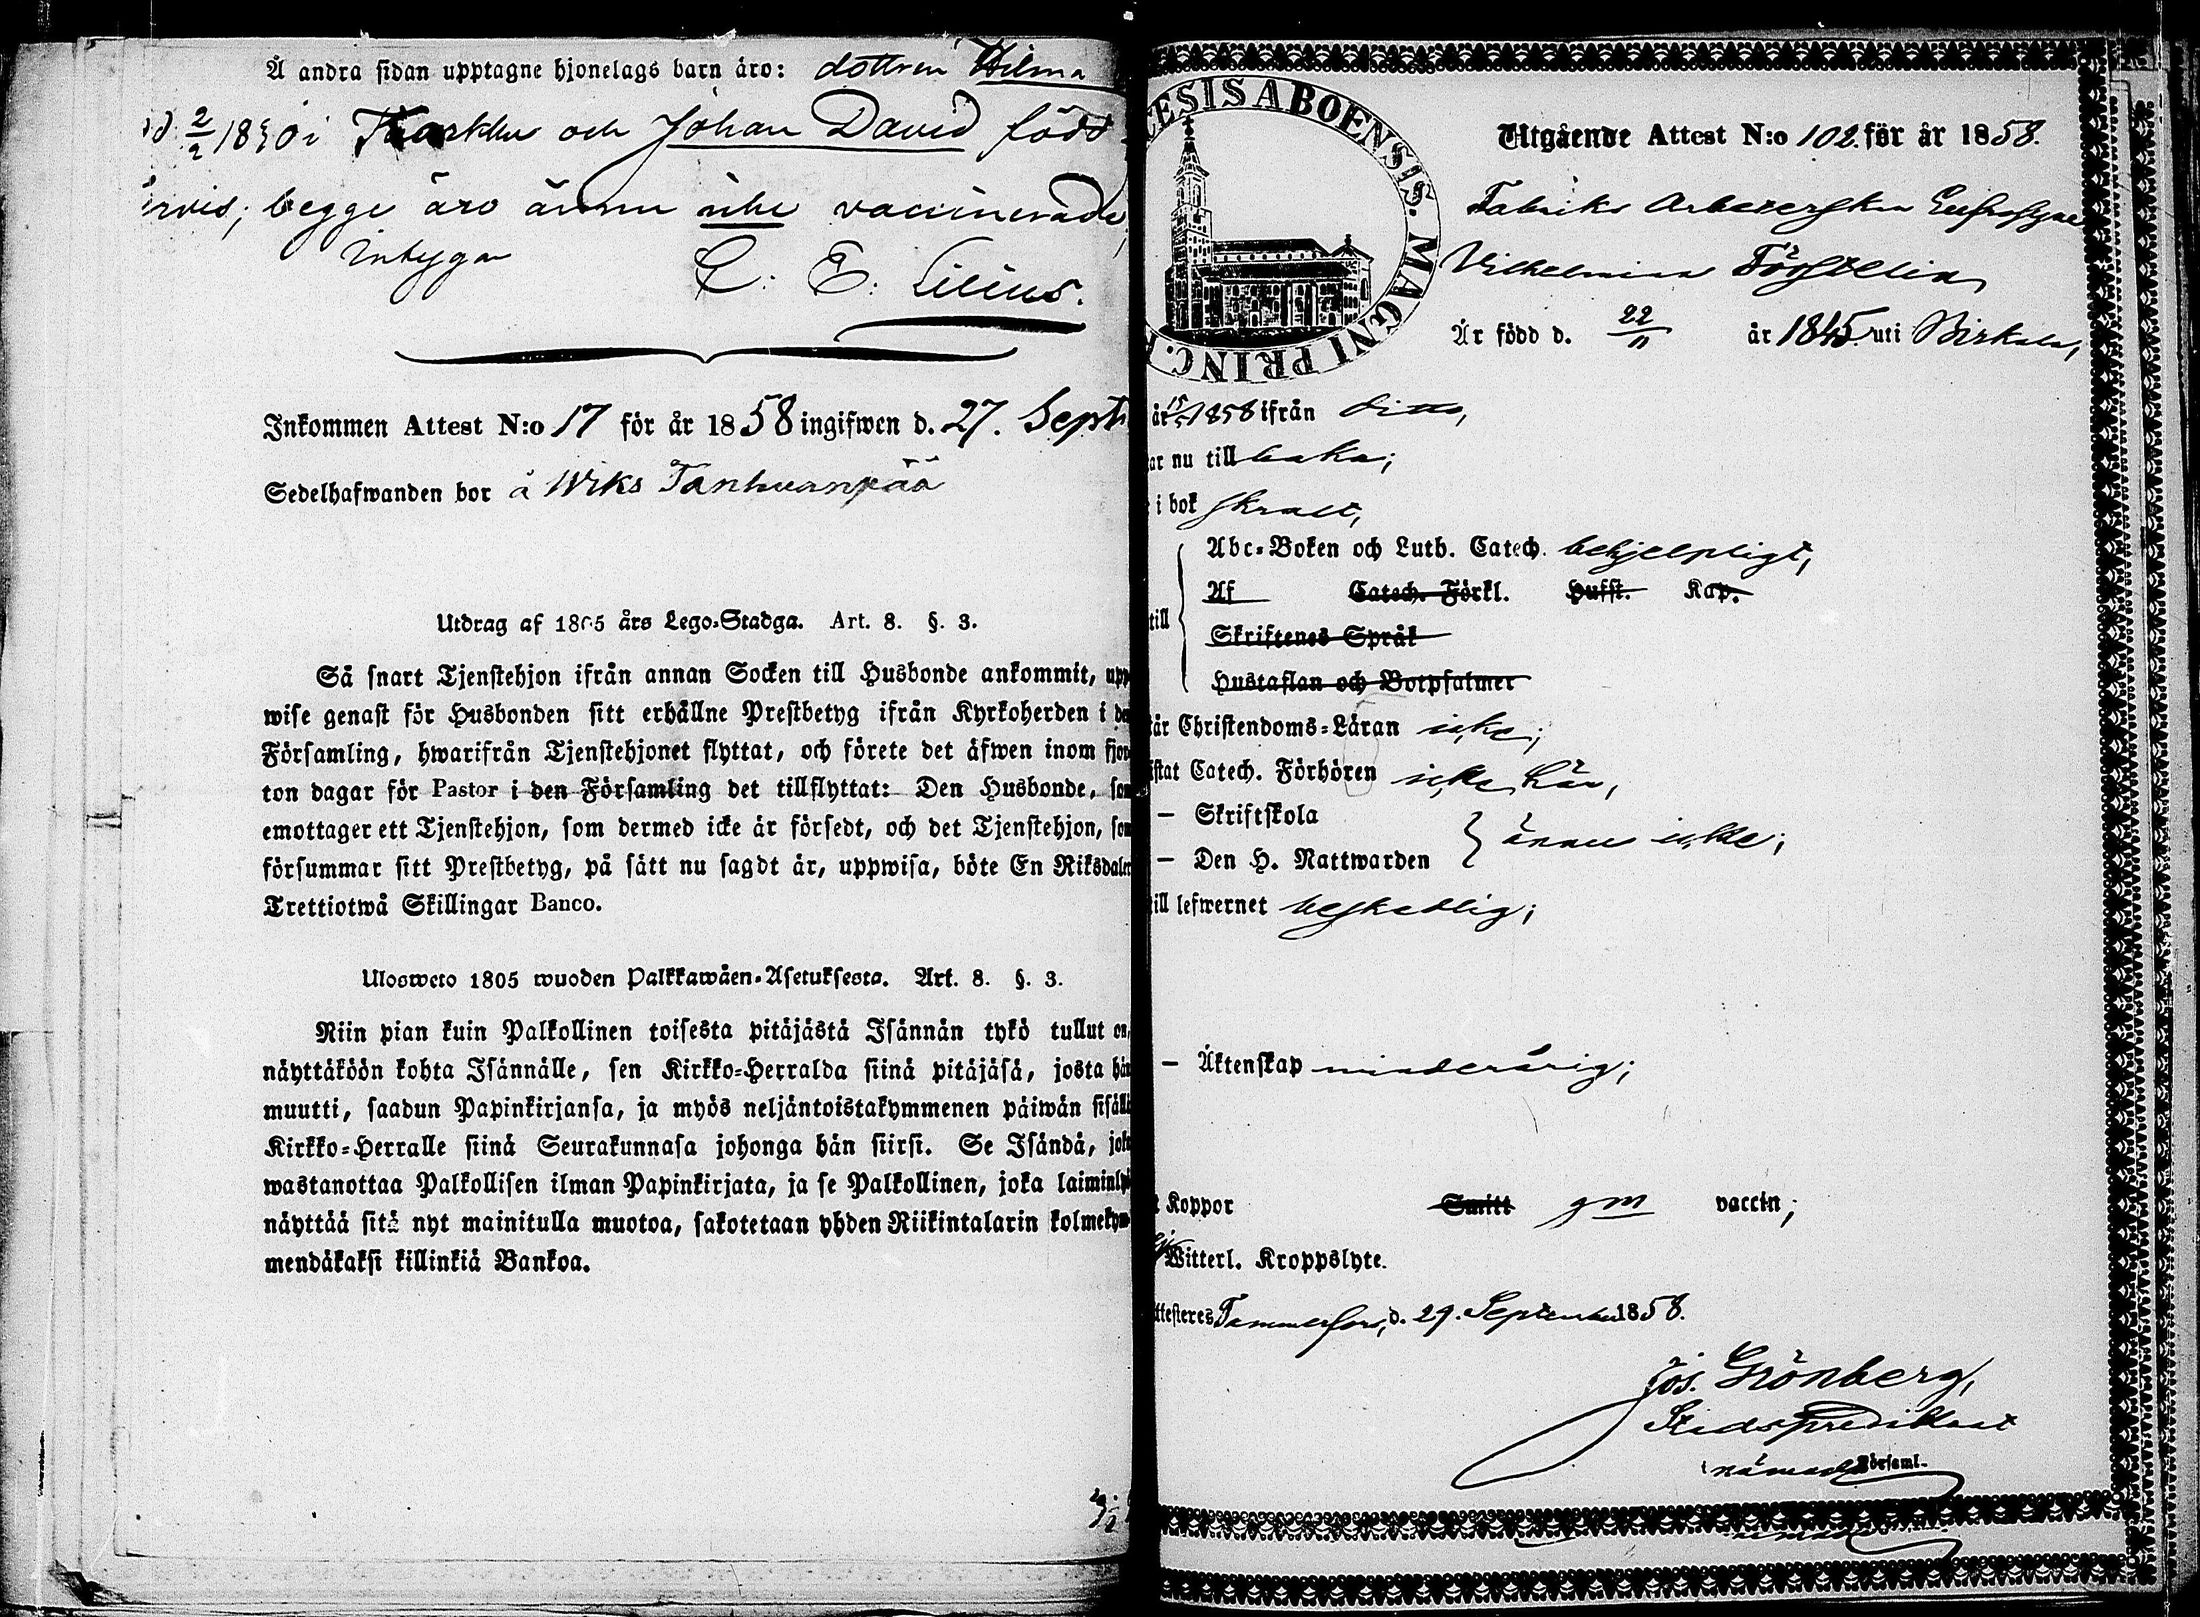 Å andra sidan upptagne hjonelags barn äro: dottren Hilma
2/2 18 i Karkku och Johan David född
begge äro ännu icke vaccinerade,
Intygar C. E. Lilius.
Inkommen Attest N:o 17 för år 1858 ingifwen d. 27. Sept
Sedelhafwanden bor å Wiks Tanhuanpää
Utdrag af 1805 års Lego-Stadga. Art. 8. §. 3.
Så snart Tjenstehjon ifrån annan Socken till Husbonde ankommit, upp
wise genast för Husbonden sitt erhållne Prestbetyg ifrån Kyrkoherden i
Församling, hwarifrån Tjenstehjonet flyttat, och förete det äfwen inom fjor
ton dagar för Pastor i den Församling det tillflyttat: Den Husbonde, som
emottager ett Tjenstehjon, som dermed icke är försedt, och det Tjenstehjon, som
försummar sitt Prestbetyg, på sätt nu sagdt är, uppwisa, böte En Riksdaler
Trettiotwå Skillingar Banco.
Ulosweto 1805 wuoden Palkkawäen-Asetuksesta. Art. 8. §. 3.
Niin pian kuin Palkollinen toisesta pitäjästä Isännän tykö tullut on,
näyttäköön kohta Isännälle, sen Kirkko-Herralda siinä pitäjäsä, josta hän
muutti, saadun Papinkirjansa, ja myös neljäntoistakymmenen päiwän sisällä
Kirkko-Herralle siinä Seurakunnasa johonga hän siirsi. Se Isändä, joka
wastanottaa Palkollisen ilman Papinkirjata, ja se Palkollinen, joka laiminly
näyttää sitä nyt mainitulla muotoa, sakotetaan yhden Riikintalarin kolmekym
mendäkaksi killinkiä Bankoa.
ESIS ABOENSIS. MAGNI PRINC.
Utgående Attest N:o 102. för år 1858.
Fabriks Arbeterskan Eufrosyne
Vilhelmina
Är född d. 22/11 år 1845 uti Birkala,
år 1858 ifrån ditto,
ar nu tillbaka;
i bok svalt,
Abc-Boken och Luth. Catech. behjelpligt,
Af Catech. Förkl. Hufst. Kap.
till
Skriftenes Språk
Hustaflan och Botpsalmer
tår Christendoms-Läran icke;
istat Catech. Förhören icke här,
— Skriftskola
— Den H. Nattwarden } ännu icke;
till lefwernet beskedlig;
— Äktenskap minderårig;
Koppor Smitt gm vaccin;
Witterl. Kroppslyte.
ttesteres Tammerfors, d. 29. September 1858.
Jos. Grönberg,
Stadspredikant
Församl.